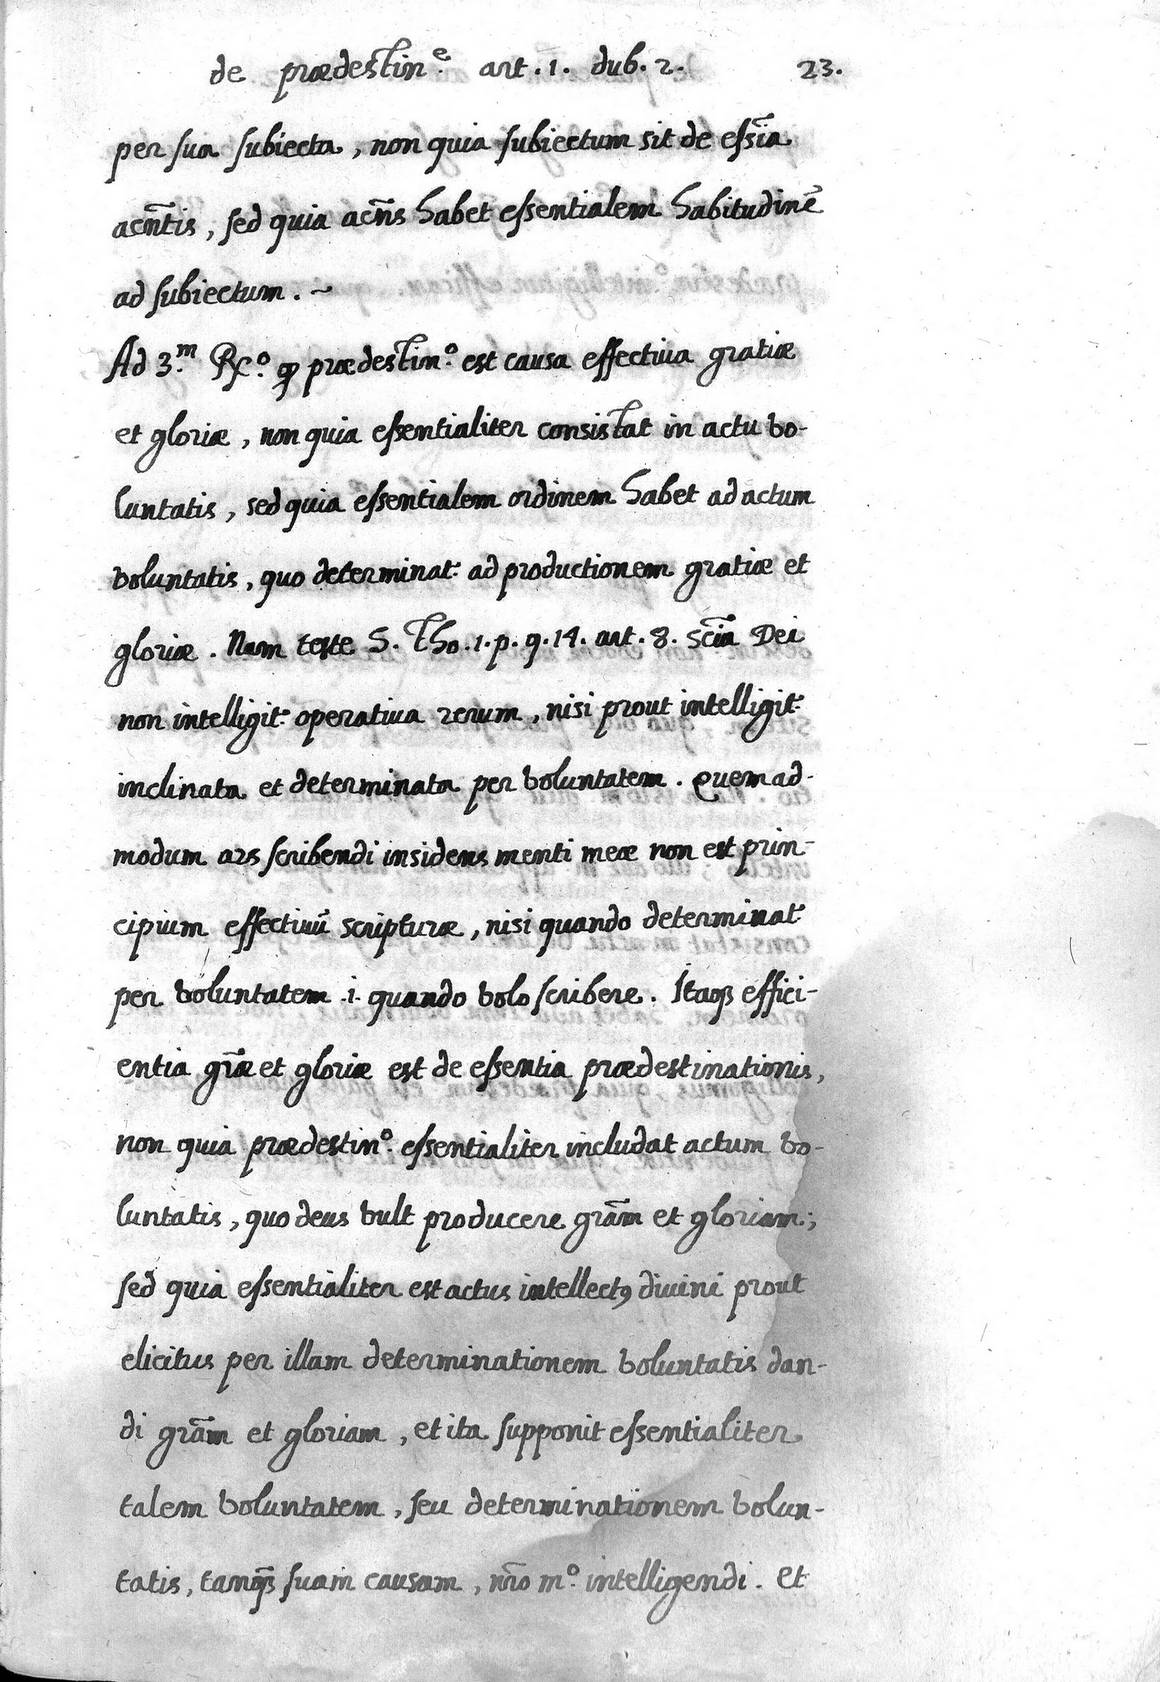 de prædestin.e art. 1. dub. 2. 23.
per sua subiecta, non quia subiectum sit de essĩa
acñtis, sed quia acñs habet essentialem habitudinẽ
ad subiectum. ~
Ad 3.m R͞x.o ꝙ prædestin.o est causa effectiua gratiæ
et gloriæ, non quia essentialiter consistat in actu vo-
luntatis, sed quia essentialem ordinem habet ad actum
voluntatis, quo determinat.r ad productionem gratiæ et
gloriæ. Nam teste S. Tho. 1. p. q. 14. art. 8. scĩa Dei
non intelligit.r operatiua rerum, nisi prout intelligit.r
inclinata et determinata per voluntatem. Quemad-
modum ars scribendi insidens menti meæ non est prin-
cipium effectiuũ scripturæ, nisi quando determinat.r
per voluntatem .i. quando volo scribere. Itaqꝫ effici-
entia grãæ et gloriæ est de essentia prædestinationis,
non quia prædestin.o essentialiter includat actum vo-
luntatis, quo deus vult producere grãm et gloriam;
sed quia essentialiter est actus intellectꝰ diuini prout
elicitus per illam determinationem voluntatis dan-
di grãm et gloriam, et ita supponit essentialiter
talem voluntatem, seu determinationem volun-
tatis, tamqꝫ̃ suam causam, nr̃o m.o intelligendi. Et